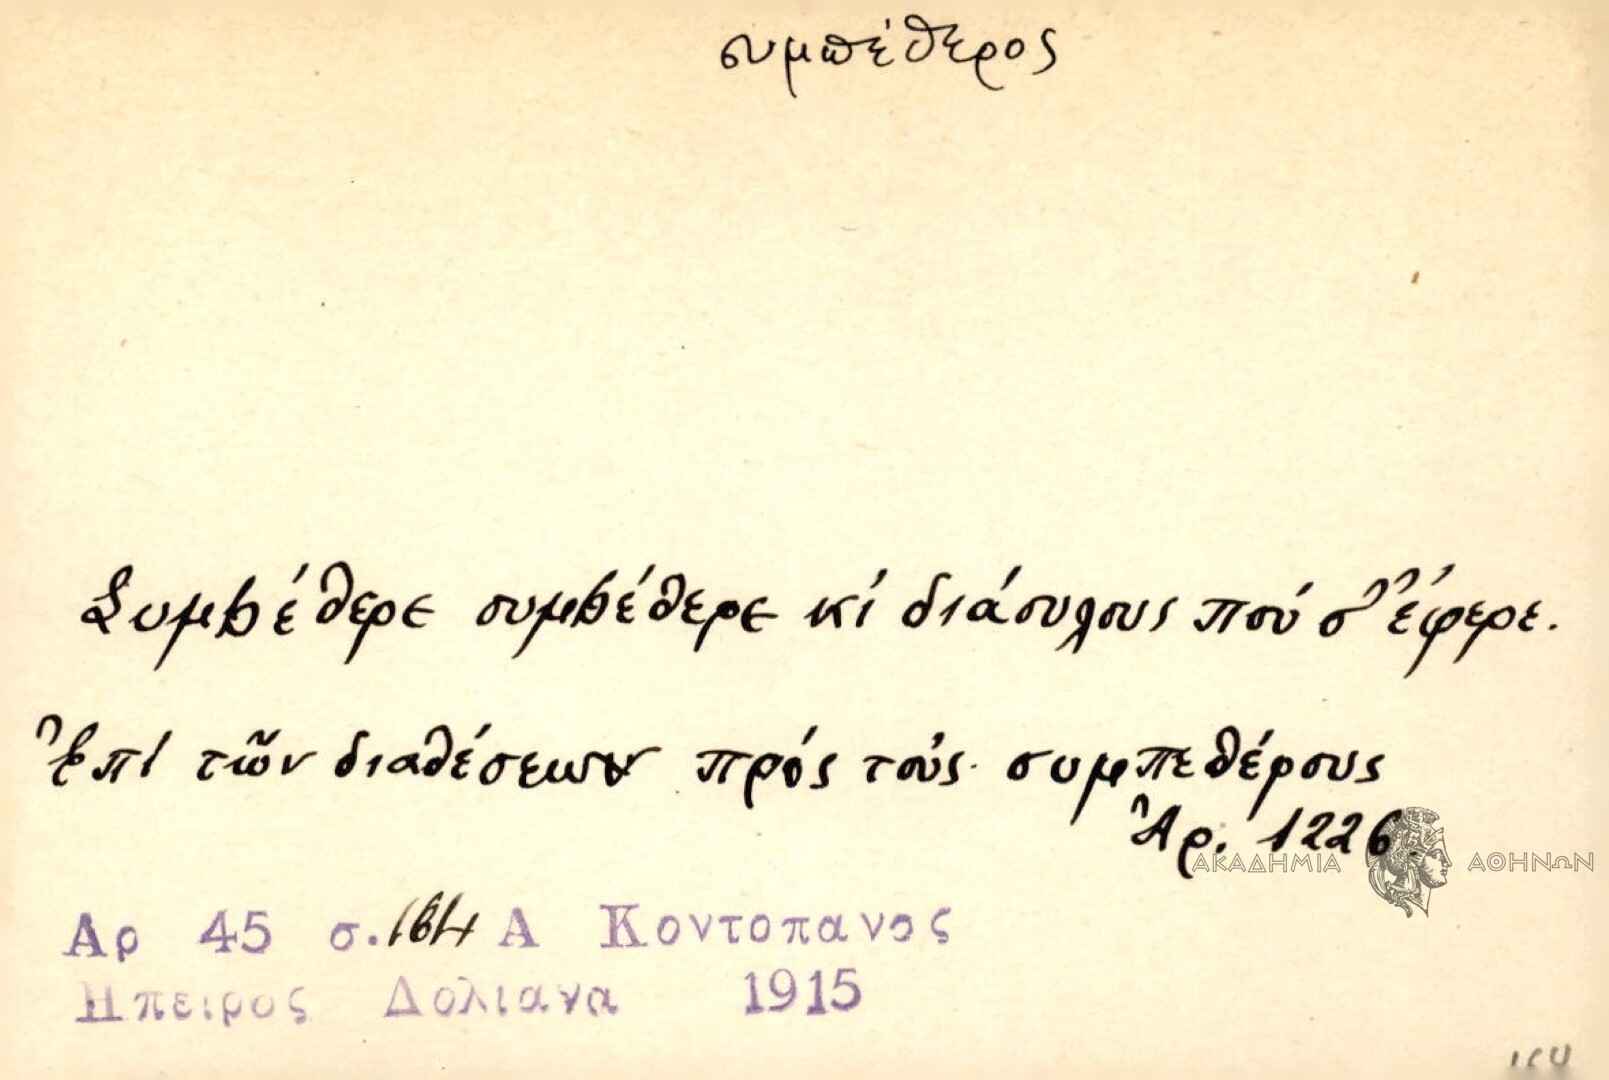 συμπέθερος
Συμbέθερε συμbέθερε κί διάουλους πού σ' ἔφερε.
Ἐπί τῶν διαθέσεων πρός τούς συμπεθέρους
Ἀρ. 1226.
ΑΚΑΔΗΜΙΑ ΑΘΗΝΩΝ
Αρ 45 σ. 164 Α Κοντοπανος
Ηπειρος Δολιανα 1915
164